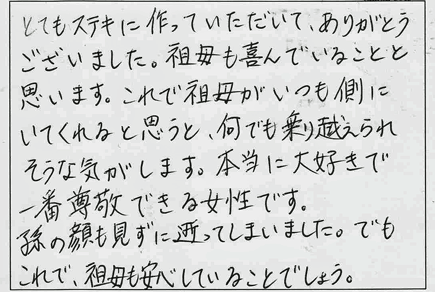 とてもステキに作っていただいて、ありがとう
ございました。祖母も喜んでいることと
思います。これで祖母がいつも側に
いてくれると思うと、何でも乗り越えられ
そうな気がします。本当に大好きで
一番尊敬できる女性です。
孫の顔も見ずに逝ってしまいました。でも
これで、祖母も安心していることでしょう。